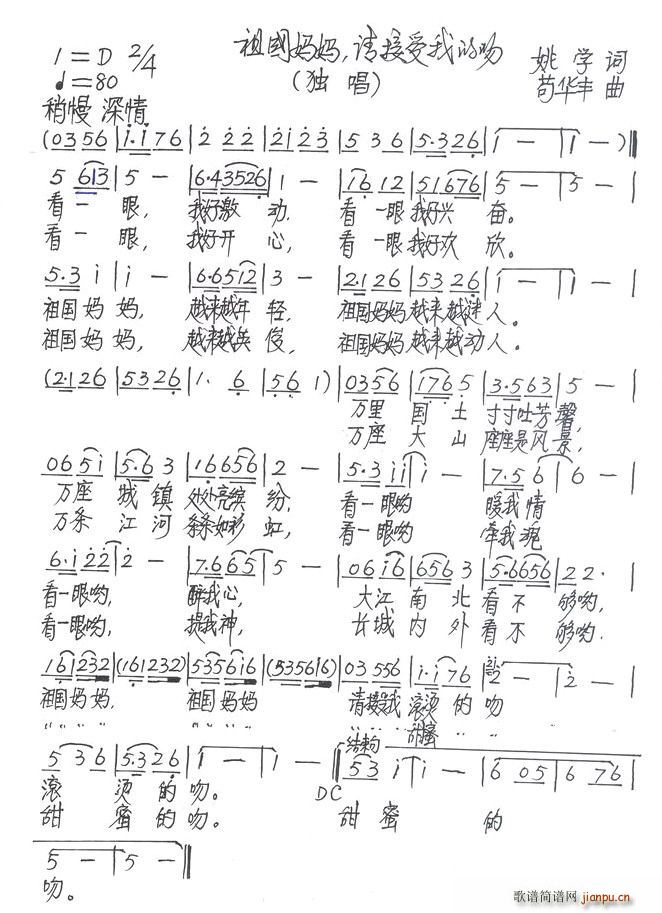 祖国妈妈,请接受我的吻
1=D 2/4
♩=80
(独 唱)
姚 学 词
苟华丰 曲
稍慢 深情
(0356 | i·i76 | 2 22 2 | 2i 23 | 5 36 | 5·326 | 1 — | 1 — )
5 613 | 5 — | 6·43526 | 1 — | 16 12 | 51676 | 5 — | 5 — |
看一 眼, 我好激 动, 看 一眼我好兴 奋。
看一 眼, 我好开 心, 看 一眼我好欢 欣。
5·3 i | i — | 6·6512 | 3 — | 2·126 | 5326 | 1 — | 1 — |
祖国妈 妈, 越来越年 轻, 祖国妈妈越来越迷人。
祖国妈 妈, 越来越英 俊, 祖国妈妈越来越动人。
(2·126 | 5326 | 1· 6 | 56 1) | 0356 | 176 5 | 3·563 | 5 — |
万里 国 土 寸寸吐芳馨,
万座 大 山 座座是风景,
065i | 5·6 3 | 16656 | 2 — | 5·3 ii | i — | 7·5 6 | 6 — |
万座 城 镇 处处亮缤 纷, 看一眼哟 暖我情
万条 江 河 条条如彩 虹, 看一眼哟 牵我魂
6·i22 | 2 — | 7·665 | 5 — | 06i6 | 656 3 | 5·6656 | 22· |
看一眼哟, 醉我心, 大江 南 北 看 不 够哟,
看一眼哟, 提我神, 长城 内 外 看 不 够哟.
16232 | (161232) | 5356i6 | (535616) | 03 556 | i·i76 | 2 — | 2 — |
祖国妈妈, 祖国妈妈 请接受我 滚烫 的 吻
〃 〃 〃 〃 〃 〃 〃 〃 〃 〃 甜蜜 〃 〃
结束句
5 36 | 5·326 | 1 — | 1 — | 53 i | i — | 6 05 | 6 76 |
DC
滚 烫 的 吻。
甜 蜜 的 吻。 甜 蜜 的
5 — | 5 — ‖
吻。
歌谱简谱网
jianpu.cn